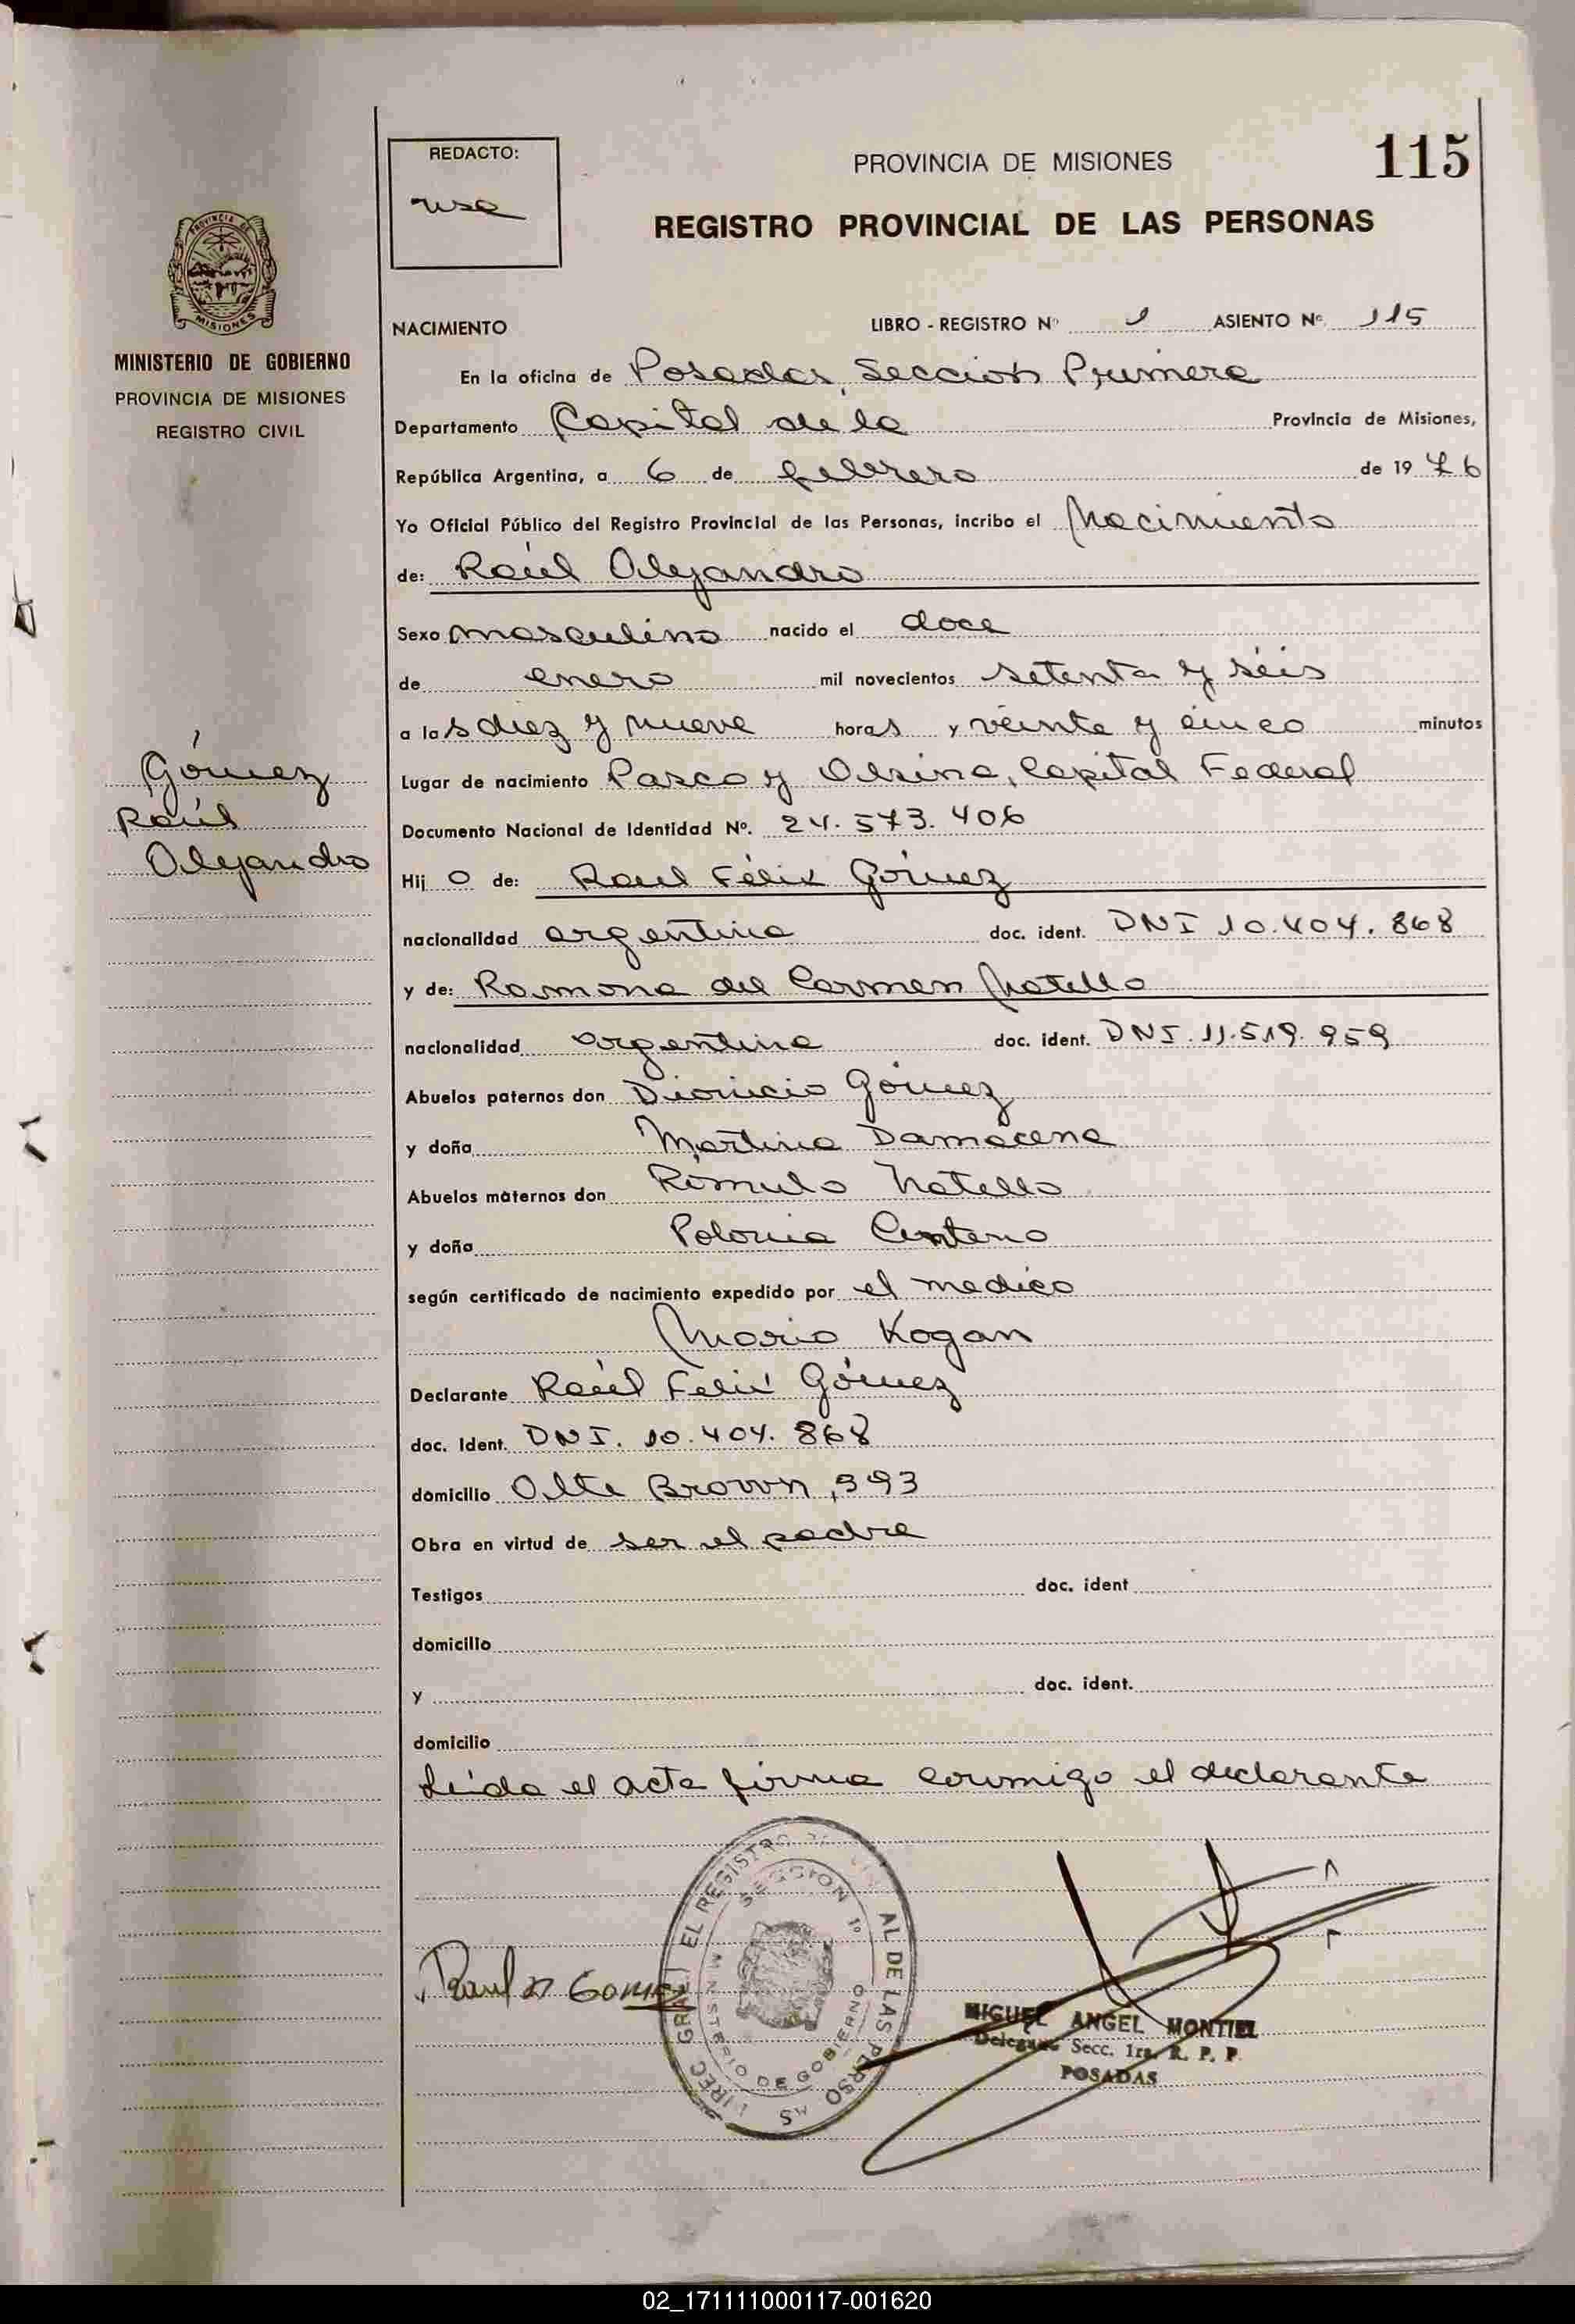 115
REDACTO:
PROVINCIA DE MISIONES
REGISTRO PROVINCIAL DE LAS PERSONAS
PROVINCIA DE
MISIONES
MINISTERIO DE GOBIERNO
PROVINCIA DE MISIONES
REGISTRO CIVIL
NACIMIENTO LIBRO - REGISTRO Nº 1 ASIENTO Nº 115
En la oficina de Posadas, Sección Primera
Departamento Capital de la Provincia de Misiones,
República Argentina, a 6 de febrero de 19 76
Yo Oficial Público del Registro Provincial de las Personas, incribo el Nacimiento
de: Raúl Alejandro
Sexo masculino nacido el doce
de enero mil novecientos setenta y séis
a las diez y nueve horas y veinte y cinco minutos
Lugar de nacimiento Pasco y Alsina, Capital Federal
Documento Nacional de Identidad Nº. 24.573.406
Gómez
Raúl
Alejandro
Hij o de: Raul Félix Gómez
nacionalidad argentina doc. ident. DNI 10.404.868
y de: Ramona del Carmen Natello
nacionalidad argentina doc. ident. DNI. 11.519.959
Abuelos paternos don Dionicio Gómez
y doña Martina Damacena
Abuelos maternos don Rómulo Natello
y doña Polonia Centeno
según certificado de nacimiento expedido por el medico
Mario Kogan
Declarante Raúl Felix Gómez
doc. Ident. DNI. 10.404.868
domicilio Alte Brown, 393
Obra en virtud de ser el padre
Testigos doc. ident
domicilio
y doc. ident.
domicilio
Leída el acta firma conmigo el declarante
SECCION 1º
MINISTERIO DE GOBIERNO
Raul GOMEZ
MIGUEL ANGEL MONTIEL
Delegado Secc. 1ra. R. P. P.
POSADAS
02_171111000117-001620